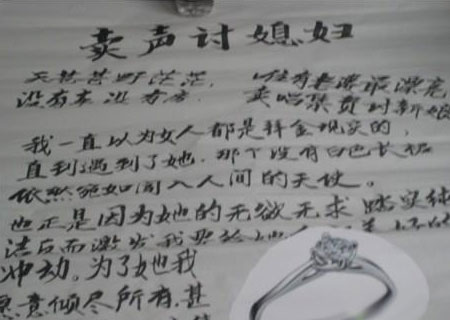 卖声讨媳妇
天苍苍野茫茫, 唯有老婆最漂亮
没有车没有房, 卖唱禁贡时新娘
我一直以为女人都是拜金现实的,
直到遇到了她. 那个没有白色长裙
依然宛如闯入人间的天使。
也正是因为她的无欲无求 踏实纯
洁反而激发我
冲动。为了她我
愿意倾尽所有.甚